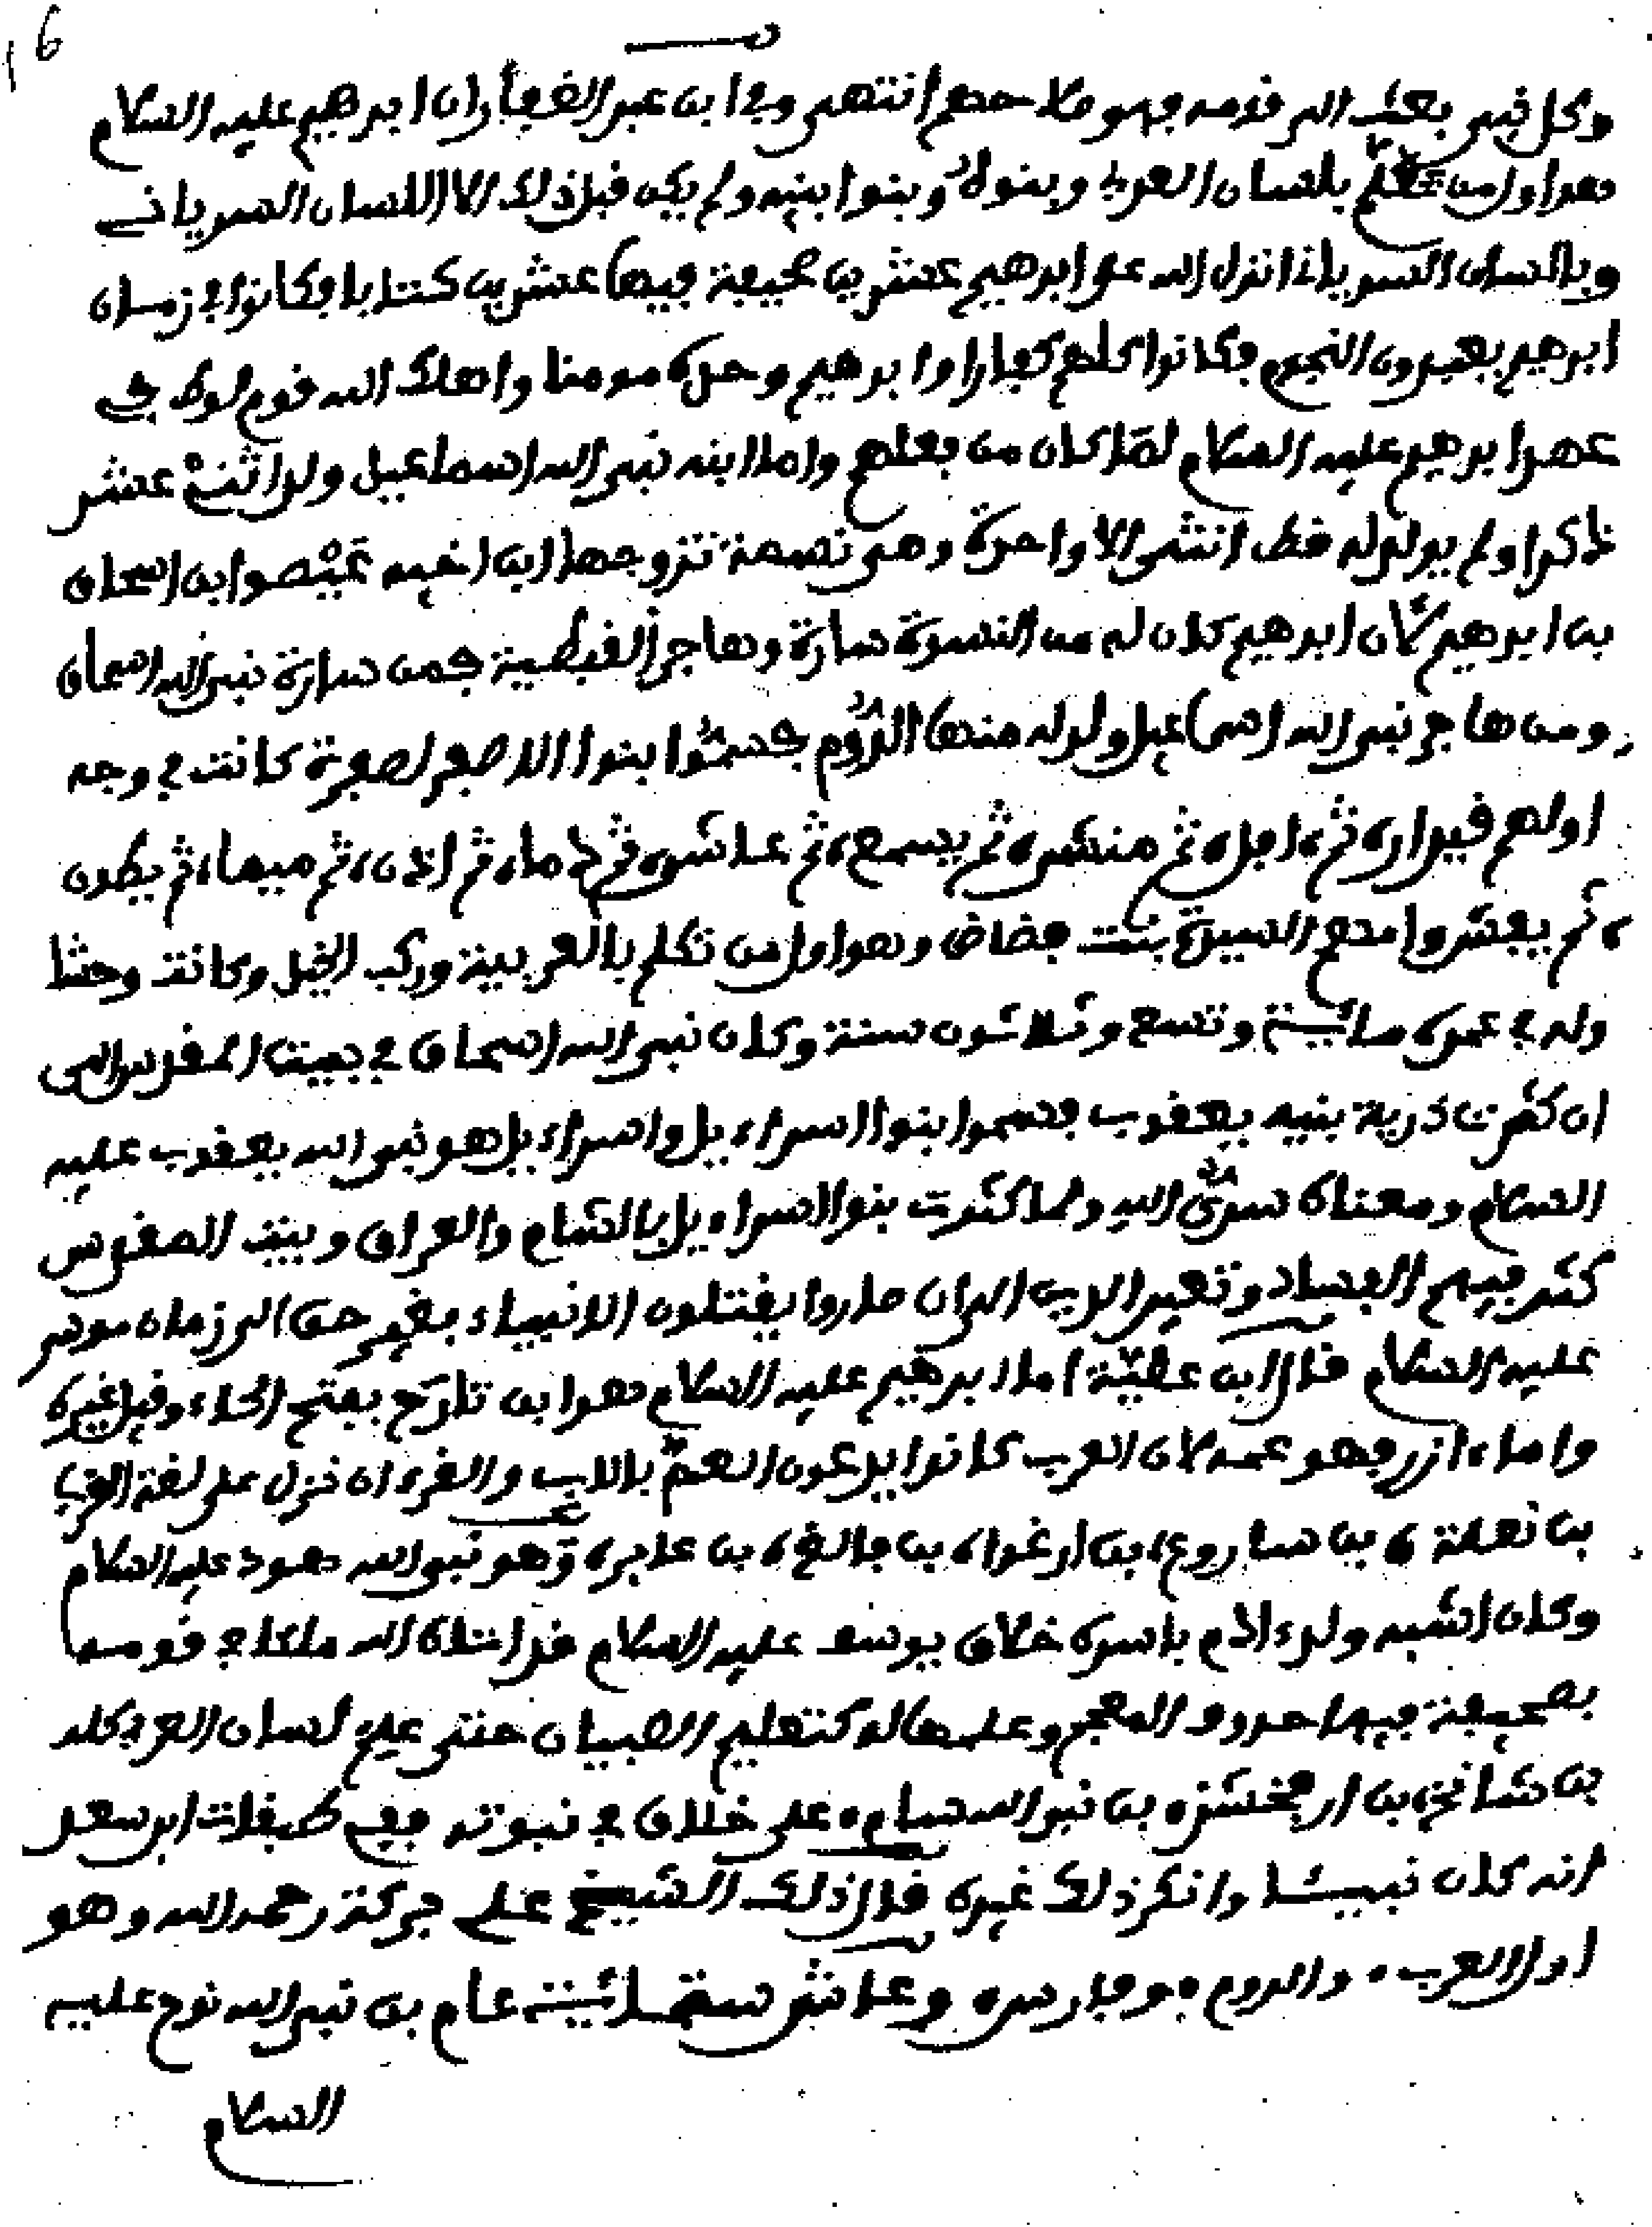 16
وكل نبي بعث الى قومه فهو منهم انتهى وفي ابن عبد الغفار ان ابرهيم عليه السلام
هو اول من تكلم بلسان العرب وبنوه وبنوا ابنيه ولم يكن قبل ذلك الا اللسان السرياني
وبالسان السرياني انزل الله على ابرهيم عشرين صحيفة فيها عشرين كتابا وكانوا في زمان
ابرهيم يعبدون النجوم وكانوا كلهم كفارا وابرهيم وحده مومنا واهلك الله قوم لوط في
عهد ابرهيم عليه السلام لما كان من فعلهم واما ابنه نبي الله اسماعيل ولد اثني عشر
ذاكرا ولم يولد له قط انثى الا واحدة وهي نصمة تزوجها ابن اخيه عيصوا بن اسحاق
بن ابرهيم لان ابرهيم كان له من النسوة سارة وهاجر القبطية فمن سارة نبي الله اسحاق
ومن هاجر نبي الله اسماعيل ولد له منها الروم فسموا بنوا الاصفر لصفرة كانت في وجه
اولهم فيدار، ثم، ادبل، ثم منشى، ثم يسمع، ثم عاشى، ثم ذما، ثم اذن، ثم ميها، ثم يطون
، ثم يعشروا امهم السيدة بنت مضاض وهو اول من تكلم بالعربية وركب الخيل وكانت وحشا
وله في عمره مائية وتسع وثلاثون سنة وكان نبي الله اسحاق في بيت المقدس الى
ان كثرت ذرية بنيه يعقوب فسموا بنوا اسراءيل واسراءيل هو نبي الله يعقوب عليه
السلام ومعناه سري الله ولما كثرت بنوا اسراءيل بالشام والعراق وبيت المقدس
كثر فيهم الفساد وتغير الدين الى ان صاروا يقتلون الانبياء بغير حق الى زمان موسى
عليه السلام قال ابن عطية اما ابرهيم عليه السلام هو ابن تارح بفتح الحاء وقيل غيره
واما ءازر فهو عمه لان العرب كانوا يدعون العم بالاب والقرءان نزل على لغة العرب
بن نعلة، بن ساروع، بن ارغوا، بن فالغ، بن عابر، وهو نبي الله هود عليه السلام
وكان اشبه ولد ءادم باسره خلاق يوسف عليه السلام قد اتاه الله ملكا في قومه
بصحيفة فيها حروف المعجم وعلمها له كتعليم الصبيان حتى علم لسان العرب كله
بن شانخ، بن ارفخشذ، بن نبي الله سام، على خلاف في نبوته ففي طبقات ابن سعد
انه كان نبيئا وانكر ذلك غيره قال ذلك الشيخ علي بركة رحمه الله وهو
ابوا العرب، والروم، وفارس، وعاش ستمائية عام بن نبي الله نوح عليه
السلام